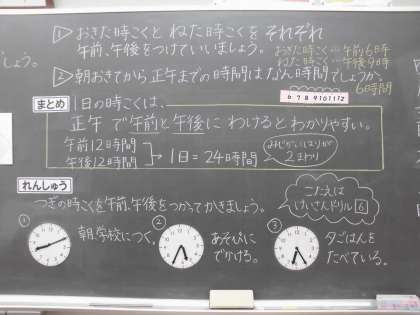 しょう。
1 おきた時こくと ねた時こくを それぞれ
午前、午後をつけていいましょう。
おきた時こく…午前6時
ねた時こく…午後9時
2 朝おきてから 正午までの時間は なん時間でしょうか。
6時間
6 7 8 9 10 11 12
まとめ
1日の時こくは、
正午 で午前と午後に わけるとわかりやすい。
午前12時間
午後12時間
→ 1日=24時間
みじかいはりが
2まわり
れんしゅう
つぎの時こくを午前、午後をつかってかきましょう。
こたえは
けいさんドリル 6
① 朝、学校につく。
② あそびに
でかける。
③ 夕ごはんを
たべている。